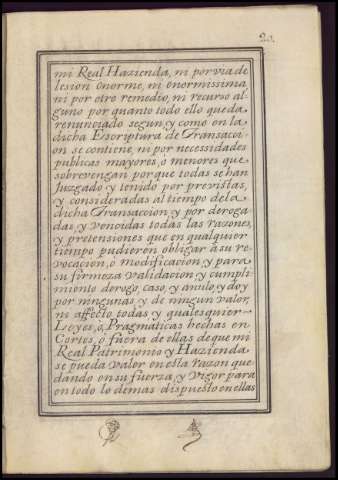 20.
mi Real Hazienda, ni por via de
lesion enorme, ni enormissima
ni por otro remedio, ni recurso al-
guno por quanto todo ello queda
renunciado segun, y como en la
dicha Escriptura de Transacci-
on se contiene, ni por necessidades
publicas mayores, o menores que
sobrevengan por que todas se han
Juzgado y tenido por previstas,
y consideradas al tiempo dela
dicha Transaccion, y por deroga
das, y vencidas todas las razones,
y pretensiones que en qualquier
tiempo pudieren obligar a su re-
vocacion, o modificacion, y para
su firmeza validacion y cumpli
miento derogo, caso, y anulo, y doy
por ningunas, y de ningun valor,
ni affecto todas y qualesquier
Leyes, o, Pragmaticas hechas en
Cortes, o fuera de ellas de que mi
Real Patrimonio y Hazienda
se pueda valer en esta razon que
dando en su fuerza, y Vigor para
en todo lo demas dispuesto en ellas